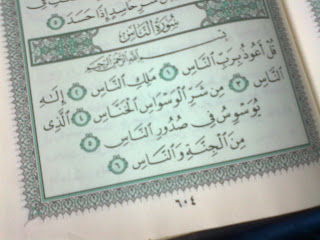 شَرِّ حَاسِدٍ إِذَا حَسَدَ ٥
سُورَةُ النَّاسِ
بِسْمِ اللَّهِ الرَّحْمَٰنِ الرَّحِيمِ
قُلْ أَعُوذُ بِرَبِّ النَّاسِ ١ مَلِكِ النَّاسِ ٢ إِلَٰهِ
النَّاسِ ٣ مِن شَرِّ الْوَسْوَاسِ الْخَنَّاسِ ٤ الَّذِي
يُوَسْوِسُ فِي صُدُورِ النَّاسِ ٥
مِنَ الْجِنَّةِ وَالنَّاسِ ٦
٦٠٤